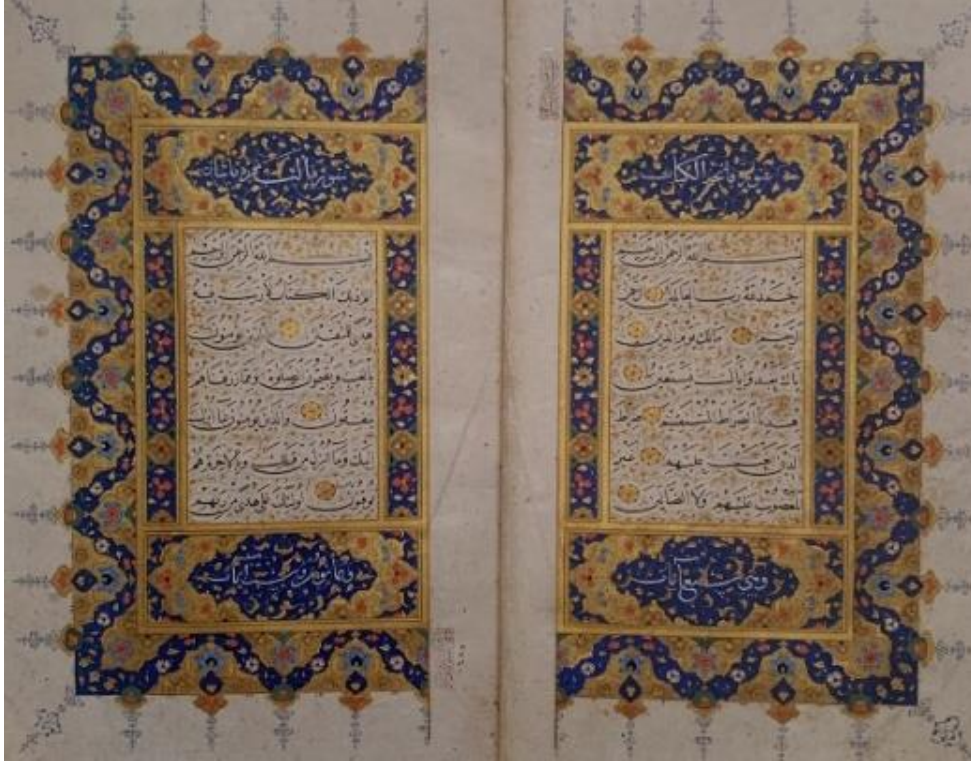 سورة فاتحة الكتاب
بسم الله الرحمن الرحيم
الحمد لله رب العالمين الرحمن
الرحيم مالك يوم الدين
اياك نعبد واياك نستعين
اهدنا الصراط المستقيم صراط
الذين انعمت عليهم غير
المغضوب عليهم ولا الضالين
وهي سبع آيات
سورة مائتان
بسم الله الرحمن الرحيم
الم ذلك الكتاب لا ريب فيه
هدى للمتقين الذين يؤمنون
بالغيب ويقيمون الصلوة ومما رزقناهم
ينفقون والذين يؤمنون بما انزل
اليك وما انزل من قبلك وبالاخرة هم
يوقنون اولئك على هدى من ربهم
وثمانون وست آيات